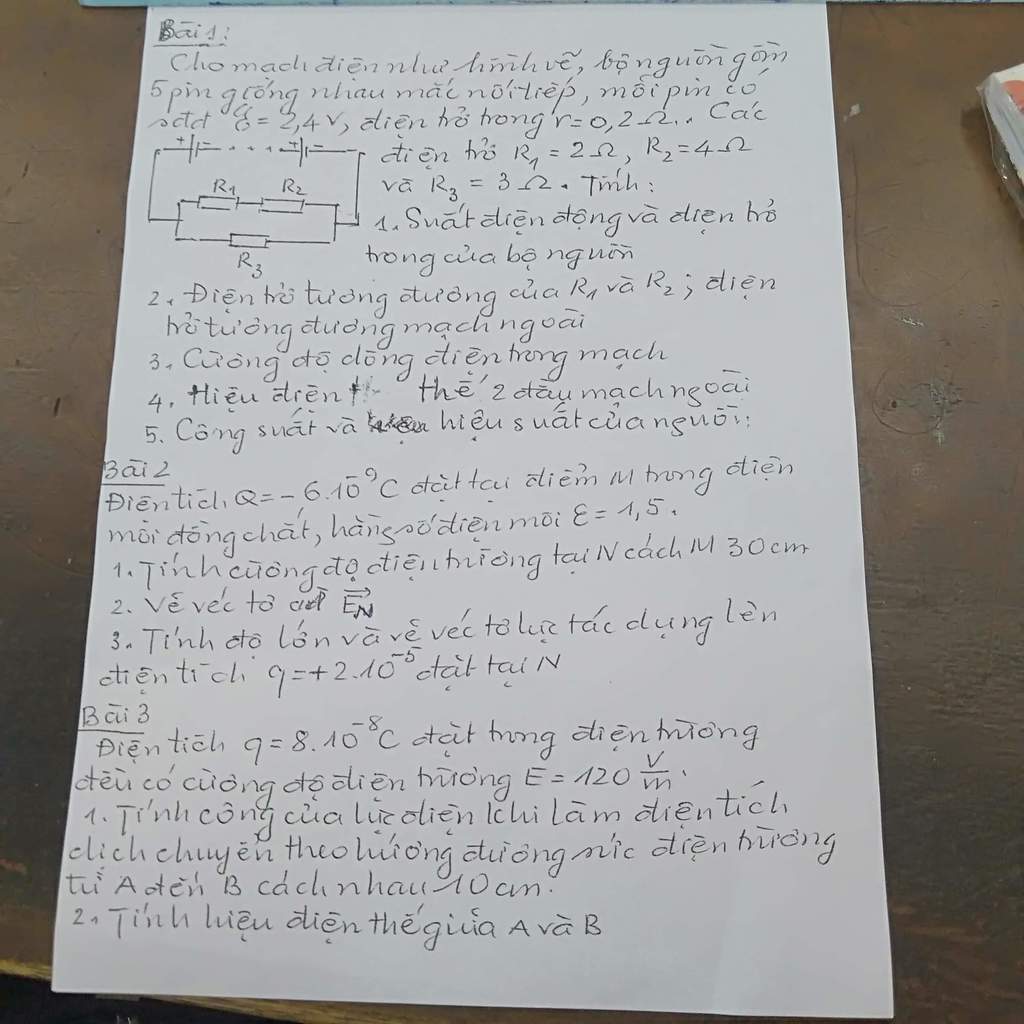 Bài 1:
Cho mạch điện như hình vẽ, bộ nguồn gồm
5 pin giống nhau mắc nối tiếp, mỗi pin có
sđđ ℰ = 2,4 V, điện trở trong r = 0,2 Ω. Các
điện trở R₁ = 2 Ω, R₂ = 4 Ω
và R₃ = 3 Ω. Tính:
R₁ R₂
R₃
1. Suất điện động và điện trở
trong của bộ nguồn
2. Điện trở tương đương của R₁ và R₂; điện
trở tương đương mạch ngoài
3. Cường độ dòng điện trong mạch
4. Hiệu điện thế 2 đầu mạch ngoài
5. Công suất và hiệu suất của nguồn:
Bài 2
Điện tích Q = - 6.10⁻⁹ C đặt tại điểm M trong điện
môi đồng chất, hằng số điện môi ε = 1,5.
1. Tính cường độ điện trường tại N cách M 30 cm
2. Vẽ véc tơ E⃗_N
3. Tính độ lớn và vẽ véc tơ lực tác dụng lên
điện tích q = + 2.10⁻⁵ đặt tại N
Bài 3
Điện tích q = 8.10⁻⁸ C đặt trong điện trường
đều có cường độ điện trường E = 120 V/m.
1. Tính công của lực điện khi làm điện tích
dịch chuyển theo hướng đường sức điện trường
từ A đến B cách nhau 10 cm.
2. Tính hiệu điện thế giữa A và B